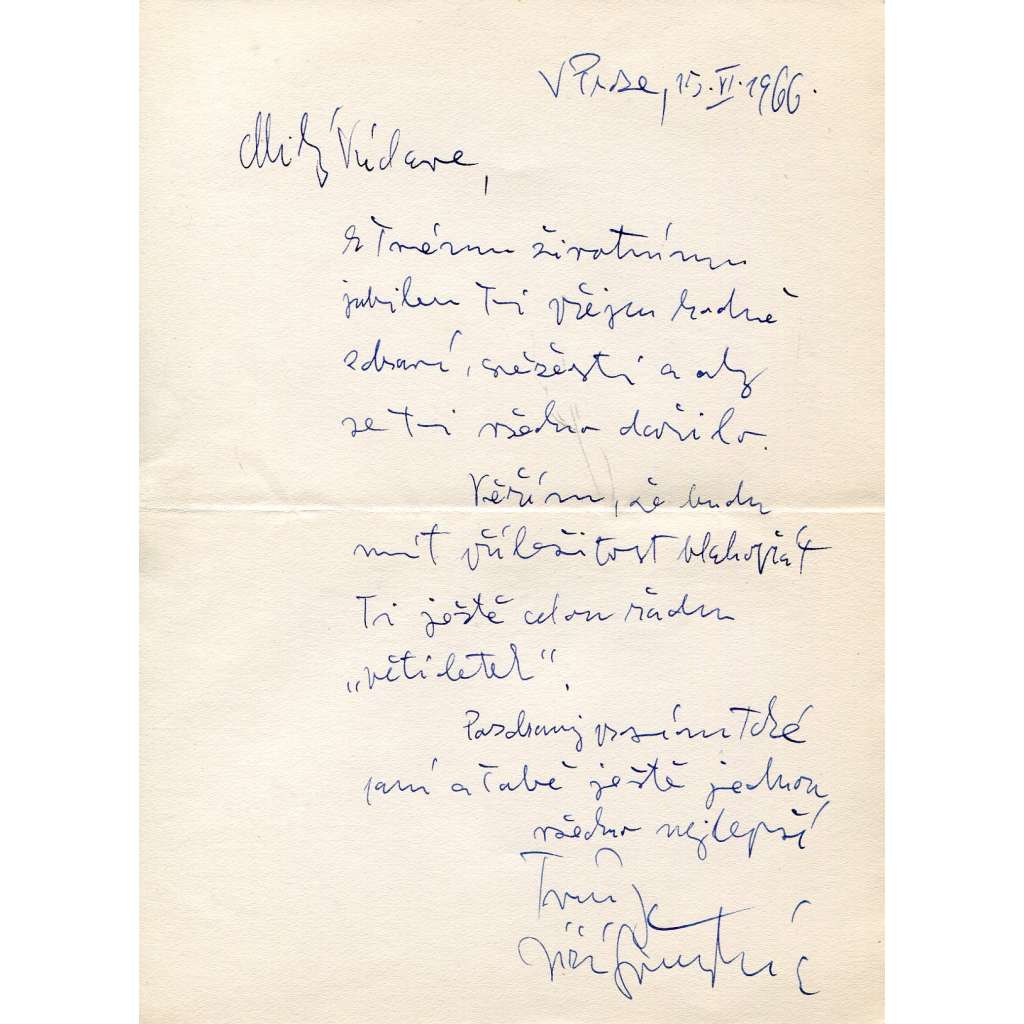 V Praze, 15.VI.1966.
Milý Václave,
k Tvému životnímu
jubileu Ti přeju hodně
zdraví, štěstí a aby
se Ti všechno dařilo.
Věřím, že budu
mít příležitost blahopřát
Ti ještě celou řadu
„pětiletek“.
Pozdravuj prosím také
paní a Tobě ještě jednou
všechno nejlepší
Tvůj
Jiří